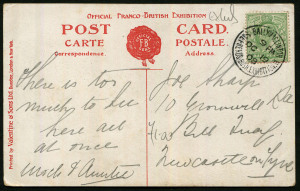 Official Franco-British Exhibition
POST CARD.
CARTE POSTALE.
Correspondence. Address.
FB
There is too
much to see
here all
at once
Uncle & Auntie
Joe Sharp
10 Cromwell
Bill Quay
Newcastle on Tyne
Printed by Valentine & Sons Ltd